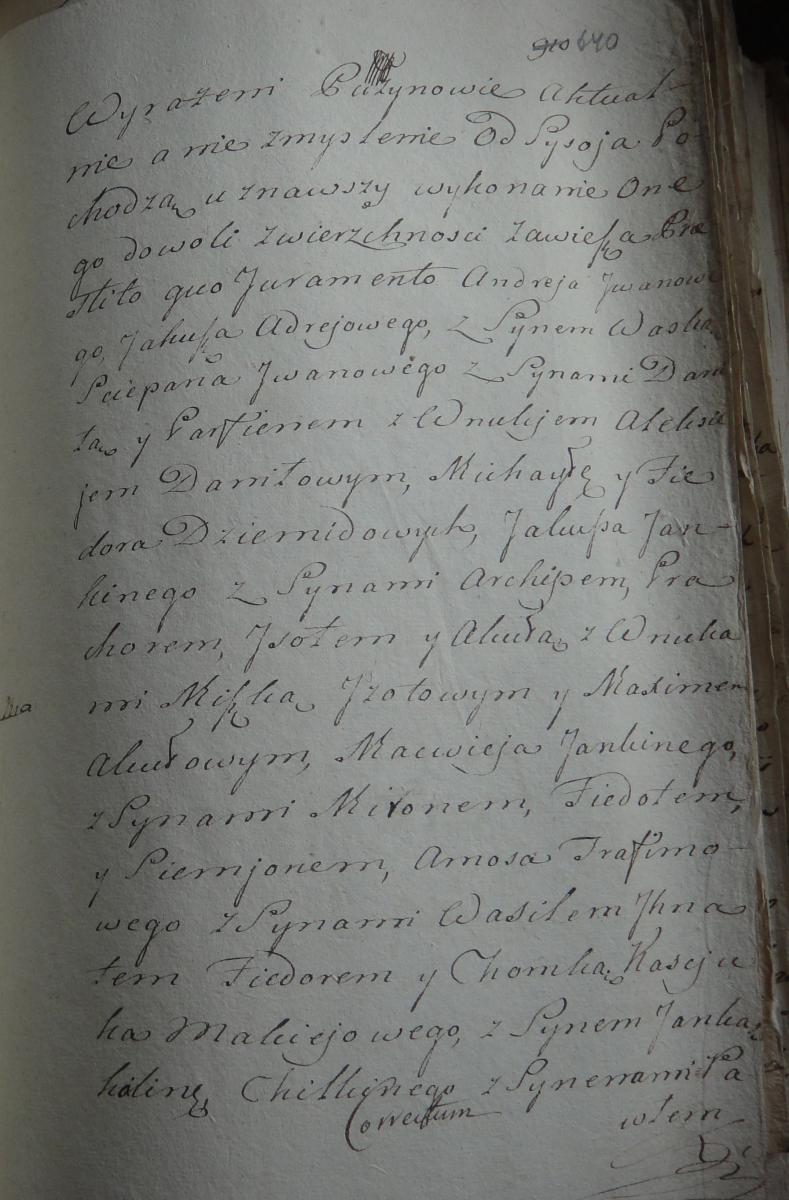 640
Wyrażeni Puzynowie Aktual-
nie a nie zmyslenie Od Sysoja Po-
chodzą, uznawszy wykonanie One
go dowoli zwierzchnosci zawiesza Præ
stito quo Juramento Andreja Jwanowe
go, Jakuba Adrejowego, z Synem Waską
Sciepana Jwanowego z Synami Dani
łą y Parfienem z Wnukijem Aleksie
jem Daniłowym, Michayłę y Fie
dora Dziemidowych, Jakuba Jan-
kinego z Synami Archipem, Pra
chorem, Jsotem y Akułą z Wnuka
mi Miszką Jzotowym y Maximem
Akułowym, Macwieja Jankinego,
z Synami Mironem, Fiedotem,
y Siemjonem, Amosa Trafimo-
wego z Synami Wasilem Jhna
tem Fiedorem y Chomką, Kasciu
ka Makiejowego, z Synem Janką
kalinę, Chilkinego z Synemami Pa-
włem
Correctum